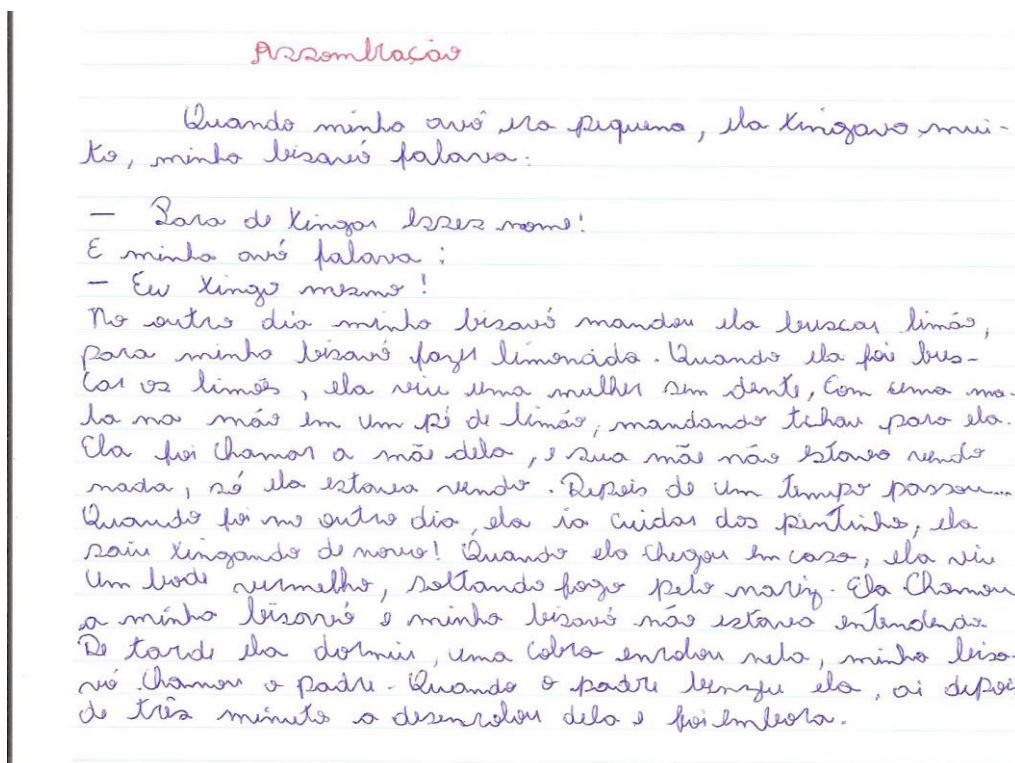 Assombração
Quando minha avó era pequena, ela xingava mui-
to, minha bisavó falava:
— Para de xingar esses nome!
E minha avó falava:
— Eu xingo mesmo!
No outro dia minha bisavó mandou ela buscar limão,
para minha bisavó fazer limonada. Quando ela foi bus-
car os limões, ela viu uma mulher sem dente, com uma ma-
la na mão em um pé de limão, mandando tchau para ela.
Ela foi chamar a mãe dela, e sua mãe não estava vendo
nada, só ela estava vendo. Depois de um tempo passou...
Quando foi no outro dia, ela ia cuidar dos pintinho, ela
saiu xingando de novo! Quando ela chegou em casa, ela viu
um bode vermelho, soltando fogo pelo nariz. Ela chamou
a minha bisavó e minha bisavó não estava entendendo.
De tarde ela dormiu, uma cobra enrolou nela, minha bisa-
vó chamou o padre. Quando o padre benzeu ela, ai depois
de três minuto a desenrolou dela e foi embora.